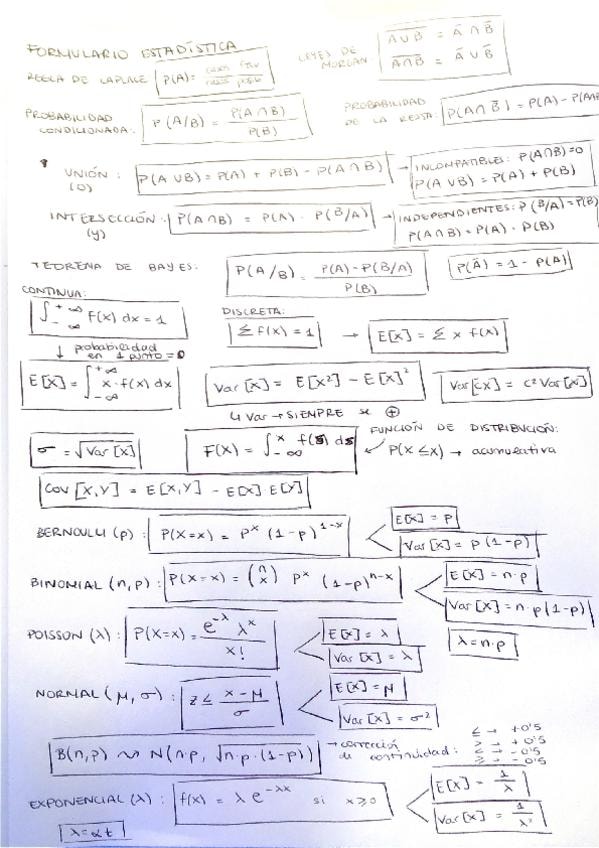 FORMULARIO ESTADÍSTICA
REGLA DE LAPLACE P(A) = casos fav / casos posib
LEYES DE MORGAN: A̅U̅B̅ = A̅ ∩ B̅
A̅∩̅B̅ = A̅ ∪ B̅
PROBABILIDAD CONDICIONADA: P(A/B) = P(A∩B) / P(B)
PROBABILIDAD DE LA RESTA: P(A∩B̅) = P(A) - P(A∩B
UNIÓN: (O) P(A∪B) = P(A) + P(B) - P(A∩B) → INCOMPATIBLES: P(A∩B)=0
P(A∪B) = P(A) + P(B)
INTERSECCIÓN: (y) P(A∩B) = P(A) · P(B/A) → INDEPENDIENTES: P(B/A)=P(B)
P(A∩B) = P(A) · P(B)
TEOREMA DE BAYES: P(A/B) = P(A)-P(B/A) / P(B)
P(A̅) = 1 - P(A)
CONTINUA:
∫_-∞^+∞ f(x) dx = 1
DISCRETA:
Σ f(x) = 1 → E[X] = Σ x f(x)
↓ probabilidad en 1 punto = 0
E[X] = ∫_-∞^+∞ x · f(x) dx
Var[X] = E[X²] - E[X]²
Var[cX] = c² Var[X]
↳ Var → SIEMPRE ⊕
σ = √Var[X]
F(X) = ∫_-∞^x f(s) ds
FUNCIÓN DE DISTRIBUCIÓN:
P(X ≤ x) → acumulativa
Cov[X,Y] = E[X,Y] - E[X] E[Y]
BERNOULLI (p): P(X=x) = p^x (1-p)^1-x
E[X] = p
Var[X] = p(1-p)
BINOMIAL (n,p): P(X=x) = (n x) p^x (1-p)^n-x
E[X] = n·p
Var[X] = n·p(1-p)
POISSON (λ): P(X=x) = e^-λ λ^x / x!
E[X] = λ
Var[X] = λ
λ = n·p
NORMAL (μ, σ): z ≤ x - μ / σ
E[X] = μ
Var[X] = σ²
B(n,p) ~ N(n·p, √n·p·(1-p)) → corrección de continuidad:
≤ → +0'5
> → +0'5
< → -0'5
≥ → -0'5
EXPONENCIAL (λ): f(x) = λ e^-λx si x ≥ 0
E[X] = 1/λ
Var[X] = 1/λ²
λ = αt